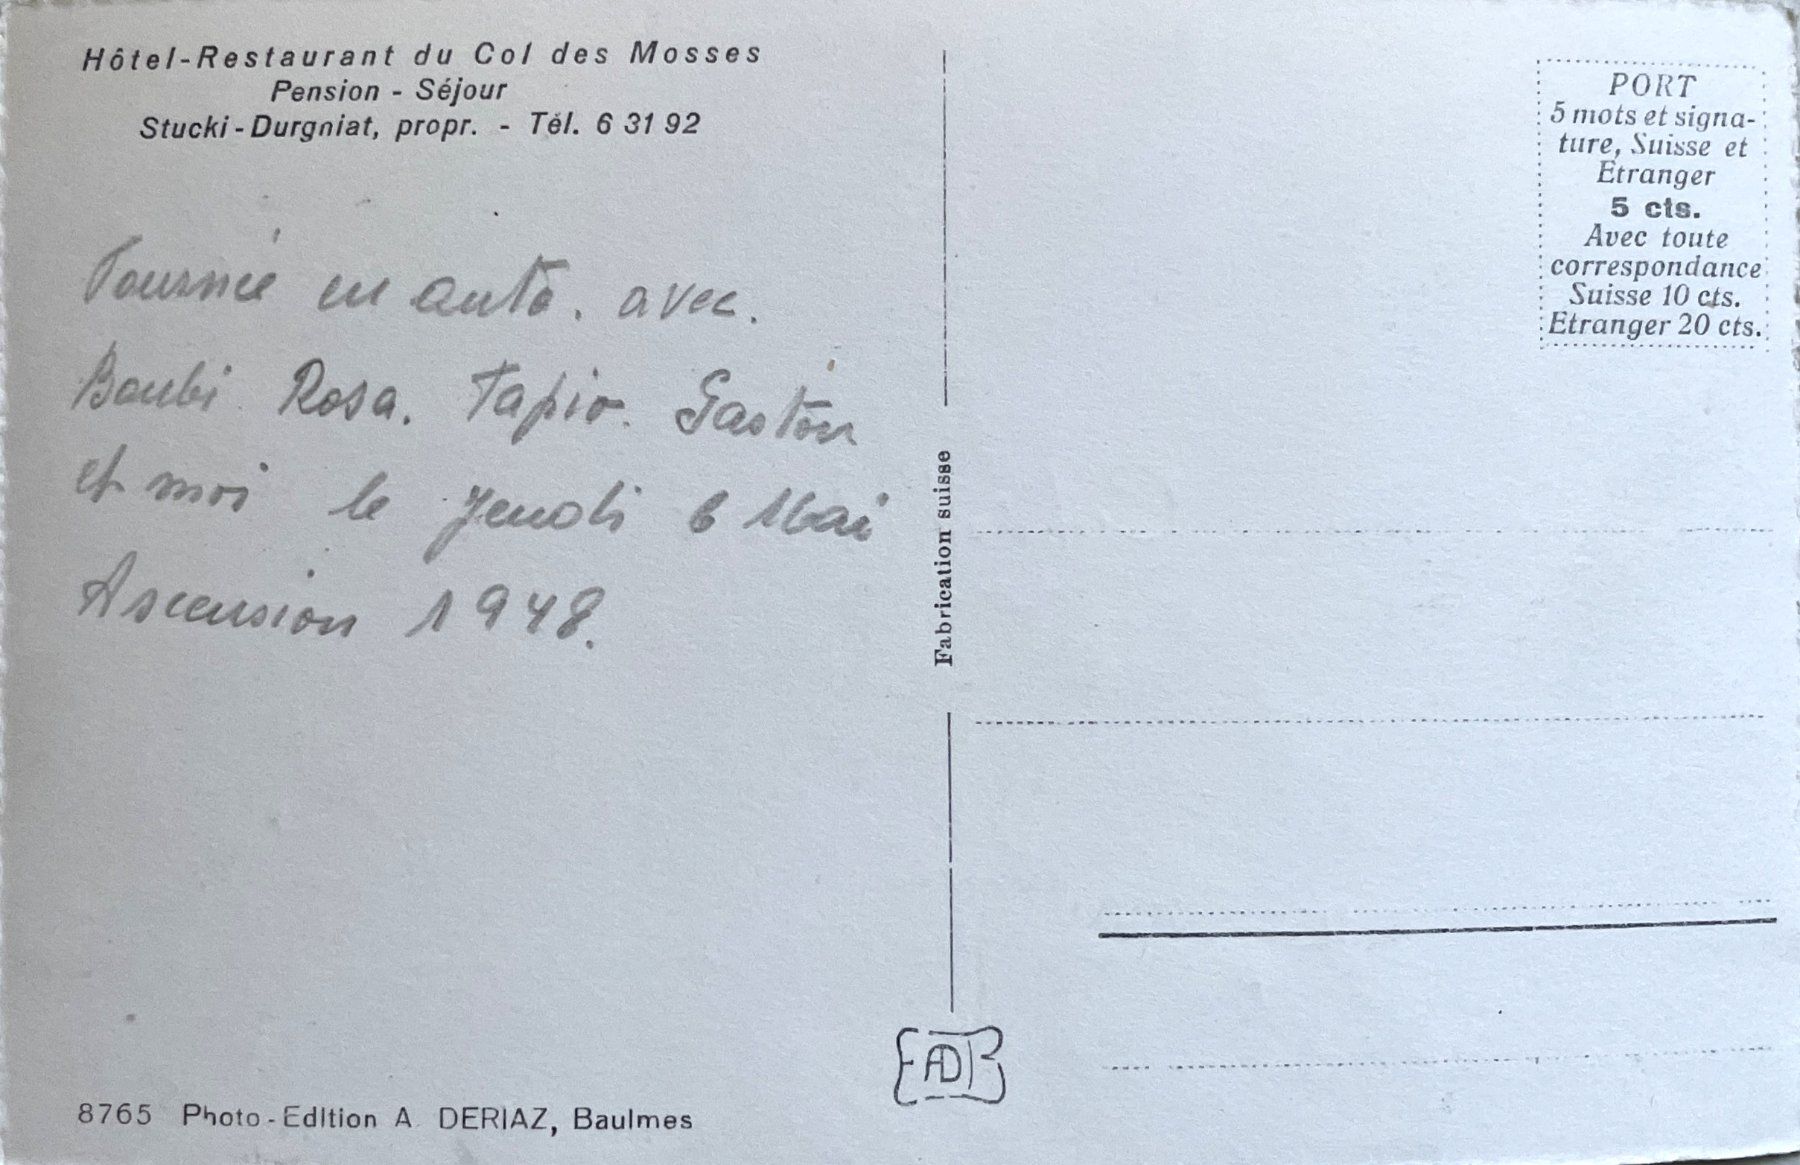 Hôtel-Restaurant du Col des Mosses
Pension - Séjour
Stucki-Durgniat, propr. - Tél. 6 31 92
Tournée en auto. avec.
Boubi Rosa. Tapio. Gaston
et moi le Jeudi 6 Mai
Ascension 1948.
8765 Photo-Edition A. DERIAZ, Baulmes
Fabrication suisse
PORT
5 mots et signa-
ture, Suisse et
Etranger
5 cts.
Avec toute
correspondance
Suisse 10 cts.
Etranger 20 cts.